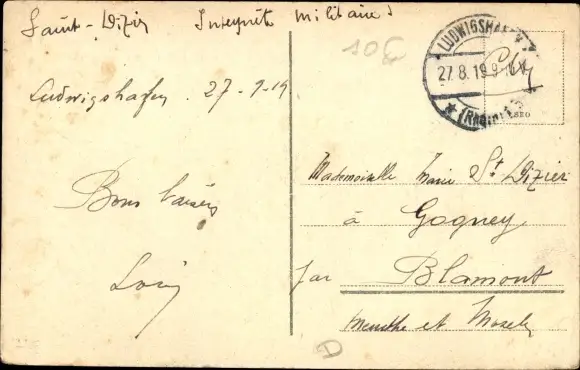 Saint-Dizier Interprète Militaire
Ludwigshafen. 27-9-19
Bons baisers
Louis
10€
LUDWIGSHAFEN
27.8.19.9-10V.
(Rhein)
Mademoiselle Marie St Dizier
à Gogney
par Blamont
Meurthe et Moselle
D